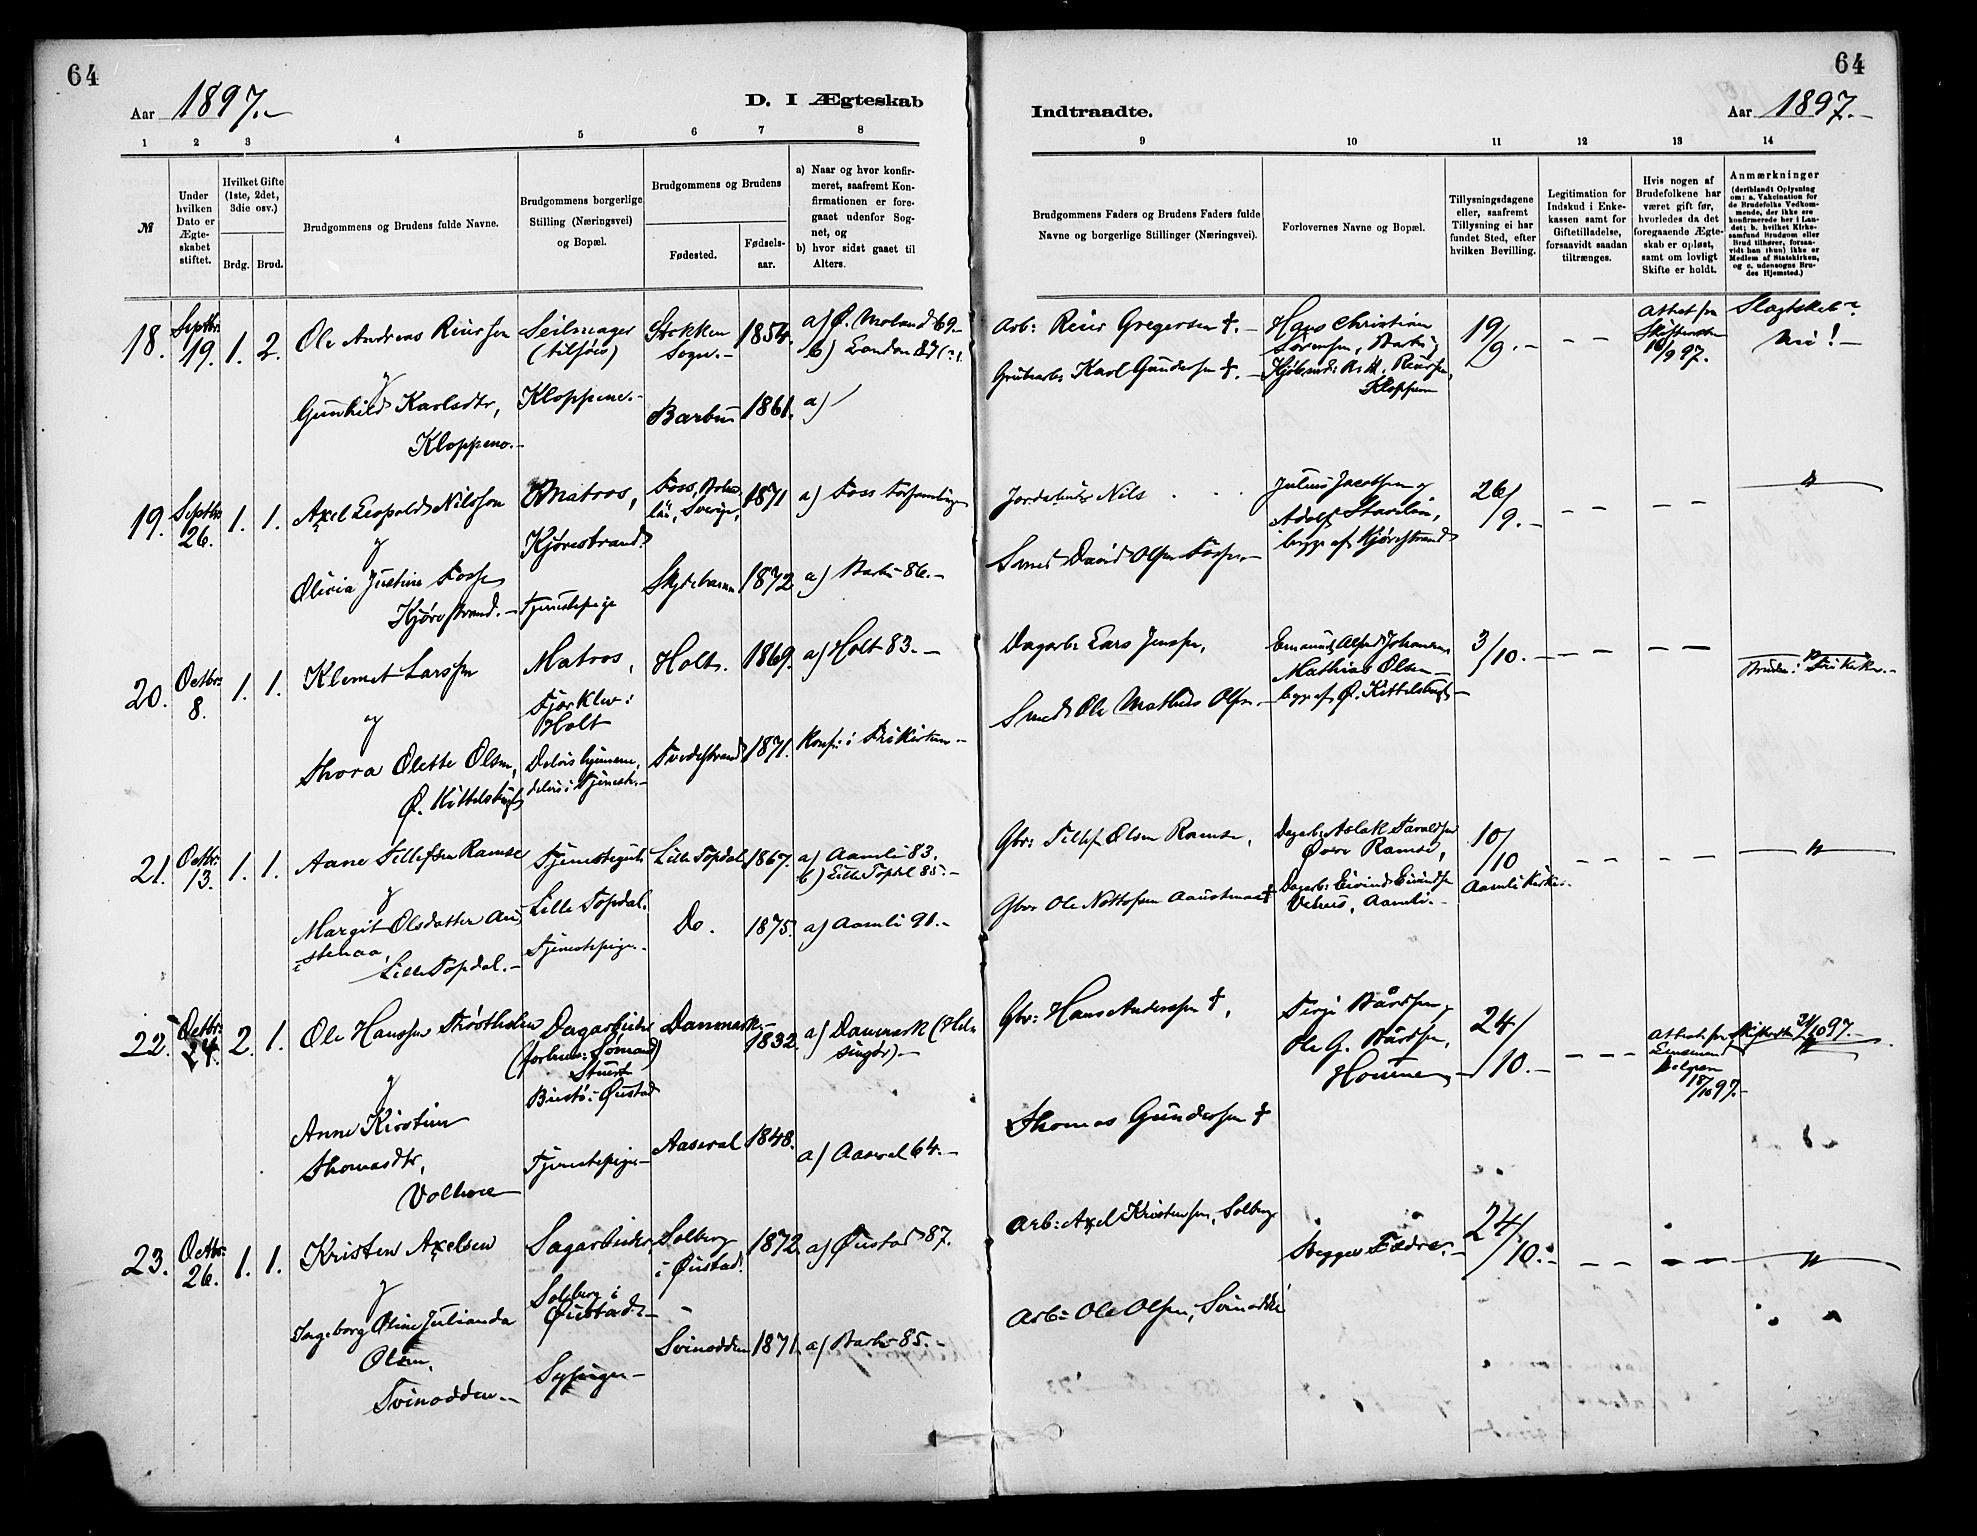 64
Aar 1897.-
D. I Ægteskab
1 2 3 4 5 6 7 8
№
Under hvilken Dato er Ægteskabet stiftet.
Hvilket Gifte (1ste, 2det, 3die osv.)
Brdg. Brud.
Brudgommens og Brudens fulde Navne.
Brudgommens borgerlige Stilling (Næringsvei) og Bopæl.
Brudgommens og Brudens
Fødested.
Fødselsaar.
a) Naar og hvor konfirmeret, saafremt Konfirmationen er foregaaet udenfor Sognet, og
b) hvor sidst gaaet til Alters.
18. Septbr. 19. 1. 2. Ole Andreas Reiersen Seilmager (tilsøes) Stokken Sogn.- 1854. a) Ø. Moland 69.-
b) London 87
Gunhild Karlsdtr, Kloppene.- Barbu 1861. a)
Kloppene.-
19. Septbr 26. 1. 1. Axel Leopold Nilsson Matros, Foss, Sverige, 1871 a) Foss Forsamling
og Kjørestrand.
Olivia Justine Fosse Skydebanen 1872. a) Barbu 86.-
Kjørestrand.- Tjenestepige
20. Octbr. 8. 1. 1. Klemet Larssen Matros, Holt. 1869. a) Holt 83.-
og Fjærklev i Holt
Thora Olette Olsen, Delvis hjemme, delvis i Tjeneste.- Tvedestrand 1871. Konf. i Frikirken-
Ø. Kittelsbugt
21. Octbr. 13. 1. 1. Aane Tellefsen Ramse Tjenestegut Lille Topdal 1867. a) Aamli 83.
b) Lille Topdal 85.-
og Lille Topdal.
Margit Olsdatter Austenaa, Do. 1875. a) Aamli 91.-
i Lille Topdal.- Tjenestepige.
22. Octbr. 24. 2. 1. Ole Hanssen Trostheim Dagarbeider Danmark.- 1832. a) Danmark (Helsingør)-
og
Anne Kirstine Thomasdtr, Tjenestepige- Aaseral 1848. a) Aaseral 64.-
Volhove
23. Octbr. 26. 1. 1. Kristen Axelsen Sagarbeider, Solberg i Øiestad. 1872. a) Øiestad 87.
og Solberg i Øiestad.-
Ingeborg Oline Julianda Olsen, Sypige- Svinodden 1871. a) Barbu 85.-
Svinodden.-
64
Indtraadte.
Aar 1897.-
9 10 11 12 13 14
Brudgommens Faders og Brudens Faders fulde Navne og borgerlige Stillinger (Næringsvei).
Forlovernes Navne og Bopæl.
Tillysningsdagene eller, saafremt Tillysning ei har fundet Sted, efter hvilken Bevilling.
Legitimation for Indskud i Enkekassen samt for Giftetilladelse, forsaavidt saadan tiltrænges.
Hvis nogen af Brudefolkene har været gift før, hvorledes da det foregaaende Ægteskab er opløst, samt om lovligt Skifte er holdt.
Anmærkninger
(deriblandt Oplysning om: a. Vakcination for de Brudefolks Vedkommende, der ikke ere konfirmerede her i Landet; b. hvilket Kirkesamfund Brudgom eller Brud tilhører, forsaavidt han (hun) ikke er Medlem af Statskirken, og c. udensogns Brudes Hjemsted.)
Arb: Reier Gregersen †.- Hans Christian Sørensen, Barbu, 19/9.- - - Attest fra Skifteretten 18/9 97. Slagtskab? Nei!-
Grubearb: Karl Gundersen †.- Reiersen, Kloppene
Jordbruker Nils . . . Julius Jacobsen og 26/9.- - - - -
Smed David Olsen Fosse,- Adolf begge af Kjørestrand
Dagarb: Lars Jensen, Emanuel Alfred Johannesen 3/10.- - - - - Bruden: Frikirken.-
Smed Ole Mathias Olsen.- Mathias Olsen- begge af Ø. Kittelsbugt-
Gbr: Tellef Olsen Ramse, Dagarb: Aslak Taraldsen Øvre Ramse, 10/10 - - - -
Gbr Ole Nottosen Austenaa † Dagarb: Eivind Eivindsen Vehus, Aamli.- Aamli Kirke.
Gbr: Hans Anderssen †, Terje Baardsen, 24/10.- - - - Attest fra Lensmand 18/10 97.- Skifteretten 21/10 97.-
Ole G. Baardsen,
Thomas Gundersen †
Arb: Axel Kristensen, Solberg Begges Fædre.- 24/10.- - - - -
Arb: Ole Olsen, Svinodden